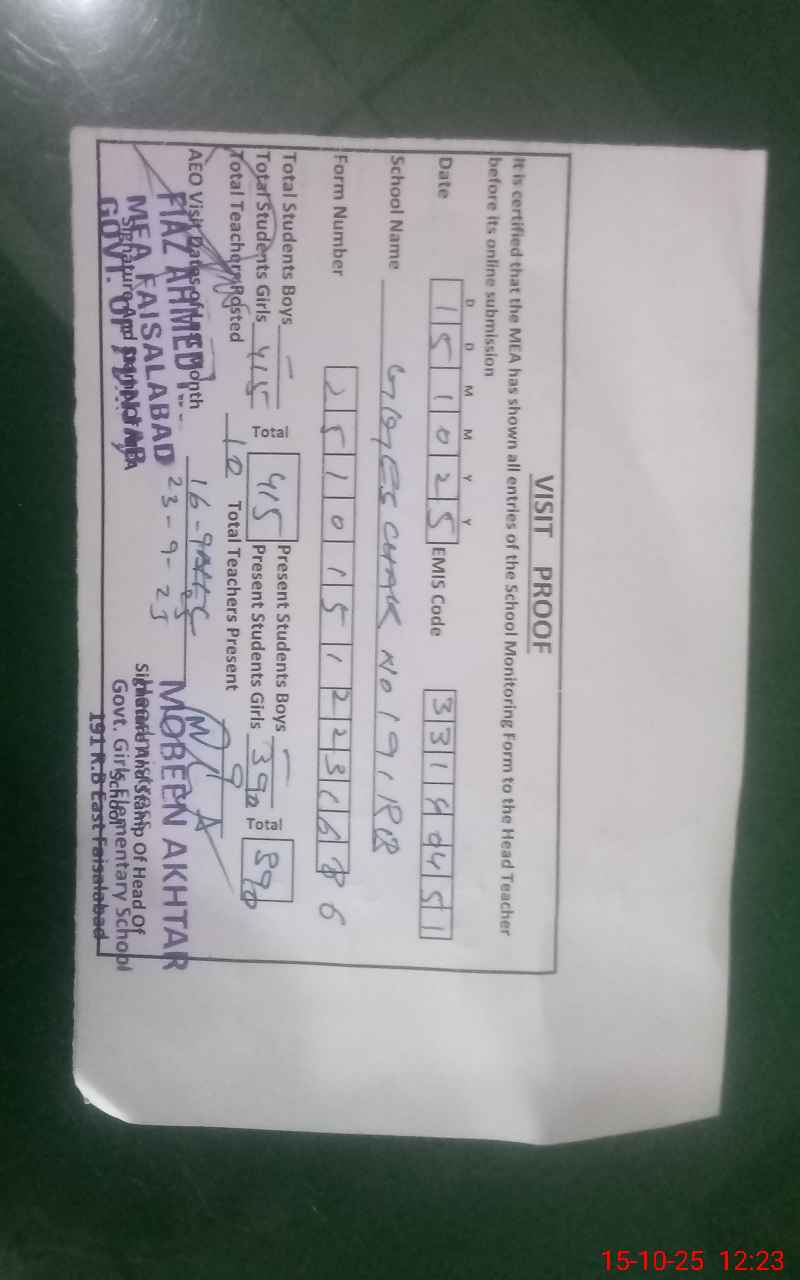 VISIT PROOF
It is certified that the MEA has shown all entries of the School Monitoring Form to the Head Teacher
before its online submission
D D M M Y Y
Date 1 5 1 0 2 5 EMIS Code 3 3 1 4 0 4 5 1
School Name GGES CHAK NO 191 RB
Form Number 2 5 1 0 1 5 1 2 2 3 1 6 6
Total Students Boys — Present Students Boys —
Total Students Girls 415 Total 415 Present Students Girls 390 Total 390
Total Teachers Posted 10 Total Teachers Present 9
AEO Visit Dates of Last Month 16-9-25
23-9-25
FIAZ AHMED
MEA FAISALABAD
GOVT. OF PUNJAB
Signature And Stamp Of MEA
MOBEEN AKHTAR
Signature And Stamp Of Head Of
School
Govt. Girls Elementary School
191 R.B East Faisalabad
15-10-25 12:23